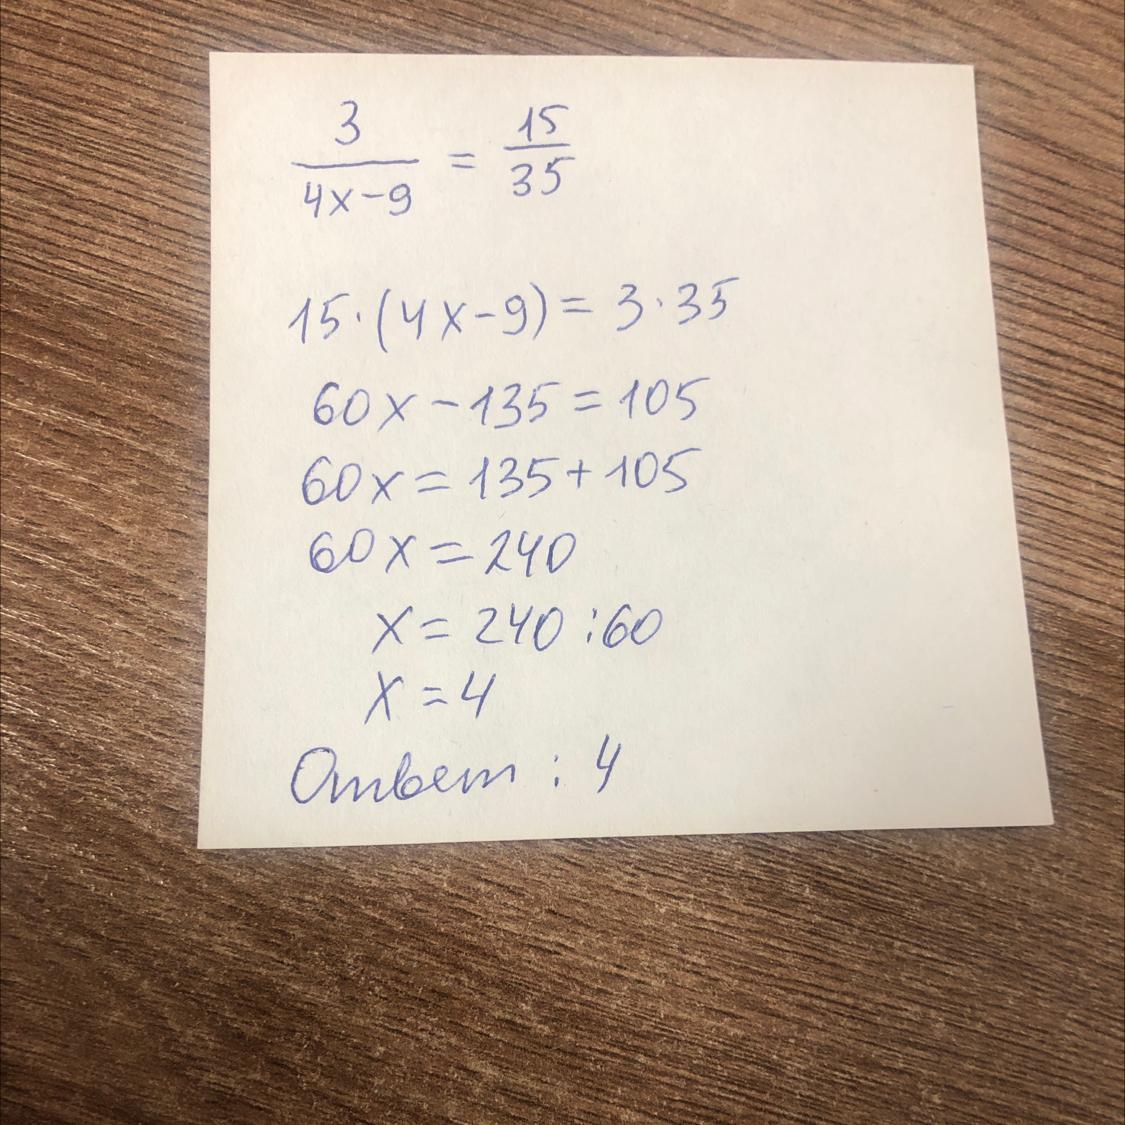 3/(4x-9) = 15/35
15·(4x-9)=3·35
60x-135=105
60x=135+105
60x=240
x=240:60
x=4
Ответ: 4